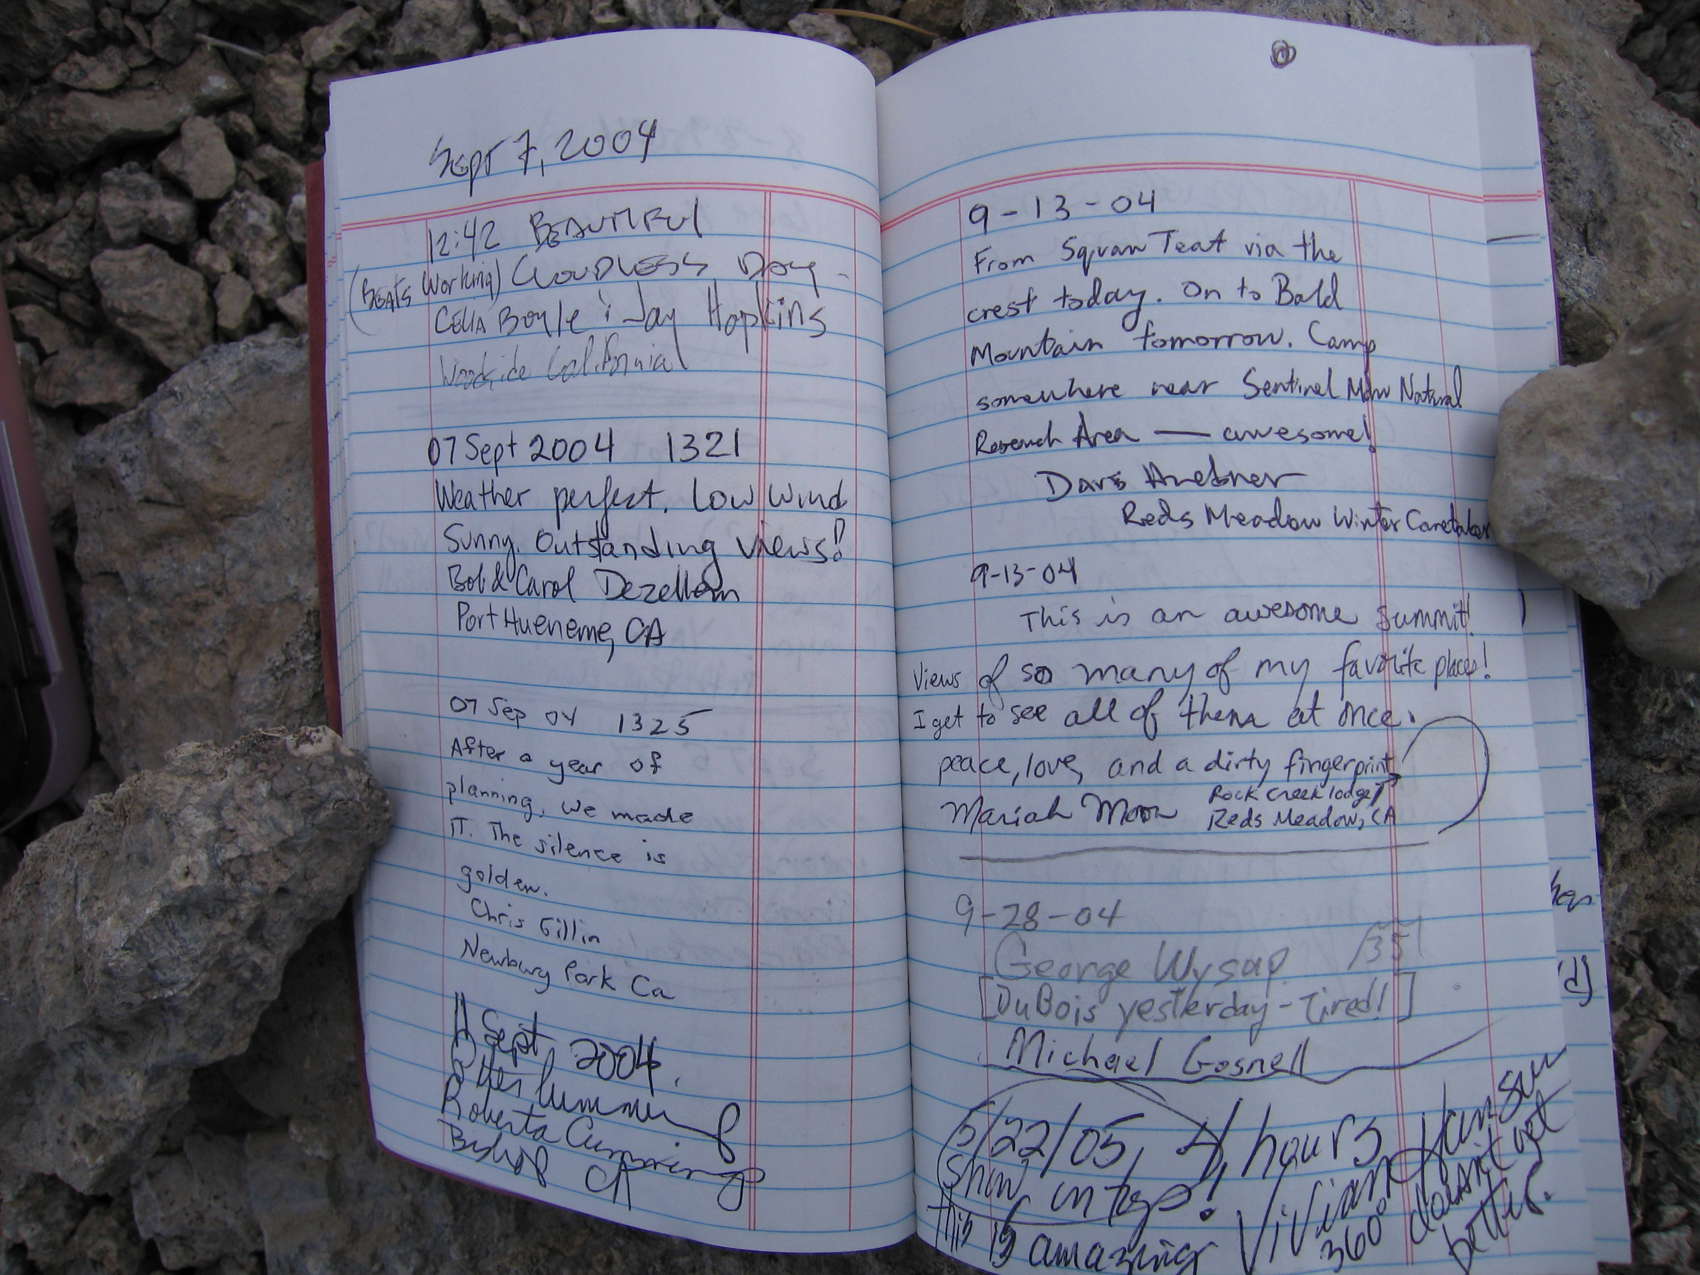 Sept 7, 2004
12:42 BEAUTIFUL
(BEATS Working) CLOUDLESS Day -
CELIA Boyle & Jay Hopkins
Woodside California
07 Sept 2004 1321
Weather perfect. Low wind
Sunny. Outstanding views!
Bob & Carol Dezellem
Port Hueneme, CA
07 Sep 04 1325
After a year of
planning, we made
IT. The silence is
golden.
Chris Gillin
Newbury Park Ca
11 Sept 2004.
Roberta Cummings
Bishop CA
9-13-04
From Squaw Teat via the
crest today. On to Bald
Mountain tomorrow. Camp
somewhere near Sentinel Mdw Natural
Research Area — awesome!
Reds Meadow Winter Caretaker
9-13-04
This is an awesome summit!
Views of so many of my favorite places!
I get to see all of them at once.
peace, love, and a dirty fingerprint
Mariah Moon Rock Creek lodge
Reds Meadow, CA
9-28-04
George Wysup 135
[DuBois yesterday - Tired!]
Michael Gosnell
5/22/05, 4 hours
Snow on top!
This is amazing
Vivian Hansen
360° doesn't get
better.